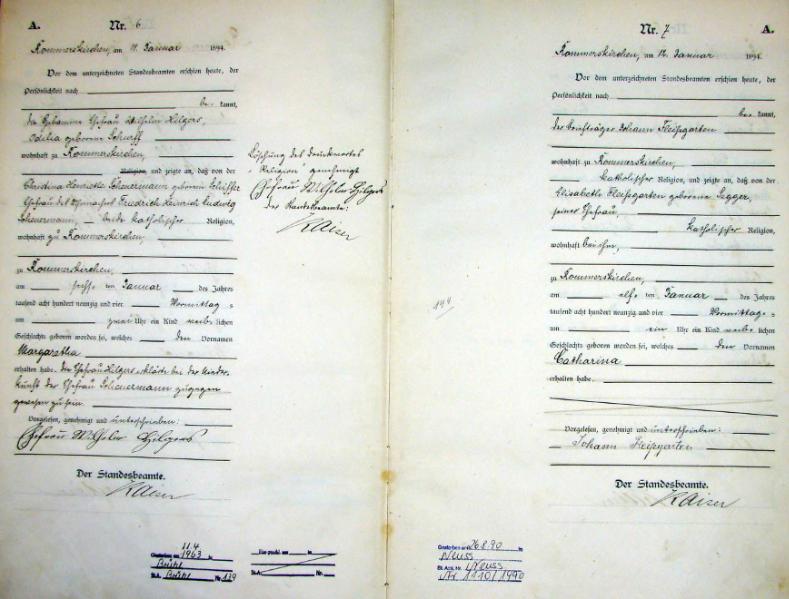 A. Nr. 6
Rommerskirchen, am 11. Januar 1894.
Vor dem unterzeichneten Standesbeamten erschien heute, der
Persönlichkeit nach
be kannt,
die Hebamme Ehefrau Wilhelm Hilgers
Odilia geborene Schurff
wohnhaft zu Rommerskirchen,
Religion, und zeigte an, daß von der
Christina Henriette Scheuermann geborene Schiffer
Ehefrau des Friedrich Heinrich Ludwig
Scheuermann, beide katholischer Religion,
wohnhaft zu Rommerskirchen,
zu Rommerskirchen,
am sechs ten Januar des Jahres
tausend acht hundert neunzig und vier Vormittag s
um zwei Uhr ein Kind weib lichen
Geschlechts geboren worden sei, welches den Vornamen
Margaretha
erhalten habe. Die Ehefrau Hilgers erklärte bei der Nieder
kunft der Ehefrau Scheuermann zugegen
gewesen zu sein.
Vorgelesen, genehmigt und unterschrieben:
Ehefrau Wilhelm Hilgers
Der Standesbeamte.
Kaiser
Löschung des Druckwortes
"Religion" genehmigt
Ehefrau Wilhelm Hilgers
Der Standesbeamte:
Kaiser
11.4
Gestorben am 1963 in
Brühl
St.A. Brühl Nr. 139
in
St.A. Nr.
Nr. 7 A.
Rommerskirchen, am 12. Januar 1894.
Vor dem unterzeichneten Standesbeamten erschien heute, der
Persönlichkeit nach
be kannt,
der Briefträger Johann Fleißgarten
wohnhaft zu Rommerskirchen,
katholischer Religion, und zeigte an, daß von der
Elisabeth Fleißgarten geborene
seiner Ehefrau,
katholischer Religion,
wohnhaft bei ihm,
zu Rommerskirchen,
am elf ten Januar des Jahres
tausend acht hundert neunzig und vier Vormittag s
um ein Uhr ein Kind weib lichen
Geschlechts geboren worden sei, welches den Vornamen
Catharina
erhalten habe.
Vorgelesen, genehmigt und unterschrieben:
Johann Fleißgarten
Der Standesbeamte.
Kaiser
194
Gestorben am 26.8.90 in
Neuss
St.Amt. Nr. Neuss
Nr. 1110/1990